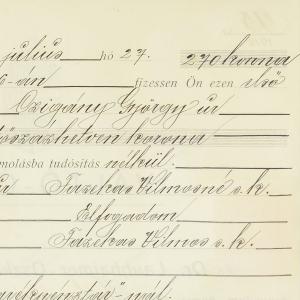 július hó 27. 270 korona
6-án fizessen Ön ezen első
Czigány György úr
hetven korona
molásba tudósítás nélkül.
Fazekas Vilmosné s. k.
Elfogadom
Fazekas Vilmos s. k.